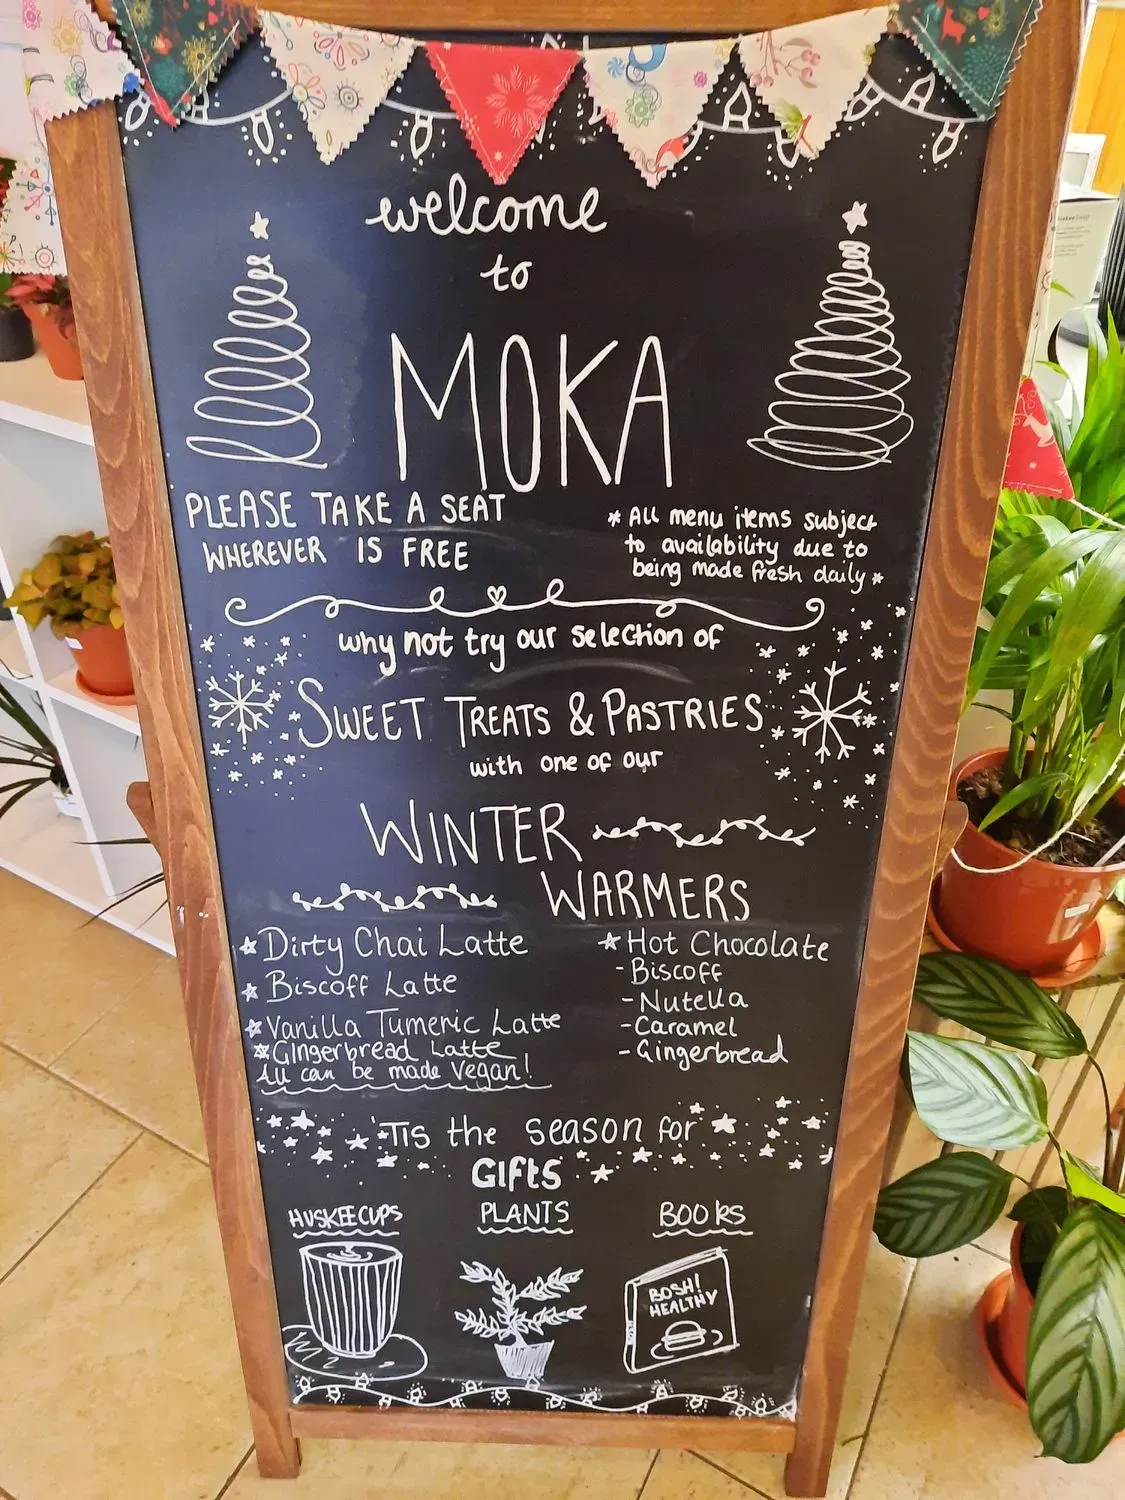 welcome
to
MOKA
PLEASE TAKE A SEAT
WHEREVER IS FREE
* All menu items subject
to availability due to
being made fresh daily *
why not try our selection of
SWEET TREATS & PASTRIES
with one of our
WINTER
WARMERS
* Dirty Chai Latte
* Biscoff Latte
* Vanilla Tumeric Latte
* Gingerbread Latte
All can be made vegan!
* Hot Chocolate
- Biscoff
- Nutella
- Caramel
- Gingerbread
'Tis the season for
GIFTS
HUSKEECUPS
PLANTS
BOOKS
BOSH!
HEALTHY